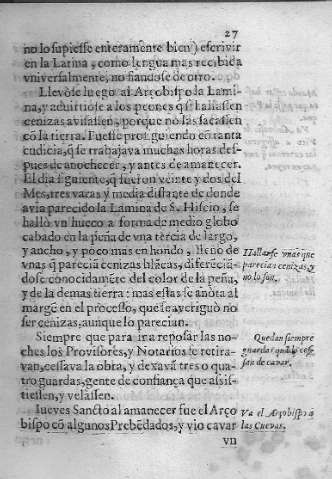 27
no lo supiesse enteramente bien) escrivir
en la Latina, como lengua mas recibida
vniversalmente, no fiandose de otro.
Llevòse luego al Arçobispo la Lami-
na, y advirtiòse a los peones q̃ si hallassen
cenizas avisassen, porque no las sacassen
cõ la tierra. Fuesse prosiguiendo cõ tanta
cudicia, q̃ se trabajava muchas horas des-
pues de anochecer, y antes de amanecer.
El dia siguiente, q̃ fueron veinte y dos del
Mes, tres varas y media distante de donde
avia parecido la Lamina de S. Hiscio, se
hallò vn hueco a forma de medio globo
cabado en la peña de vna tercia de largo,
y ancho, y poco mas en hondo, lleno de
vnas q̃ parecia cenizas blãcas, diferecià-
dose conocidamẽte del color de la peña,
y de la demas tierra: mas estas se anota al
margẽ en el processo, que se averiguò no
ser cenizas, aunque lo parecian.
Hallarse vnas que
parecian cenizas, y
no lo son.
Siempre que para ir a reposar las no-
ches los Provisores, y Notarios se retira-
van, cessava la obra, y dexavã tres o qua-
tro guardas, gente de confiança que assis-
tiessen, y velassen.
Quedan siempre
guardas quãdo ces-
san de cavar.
Iueves Sancto al amanecer fue el Arço
bispo cõ algunos Prebẽdados, y vio cavar
Va el Arçobispo à
las Cuevas.
vn